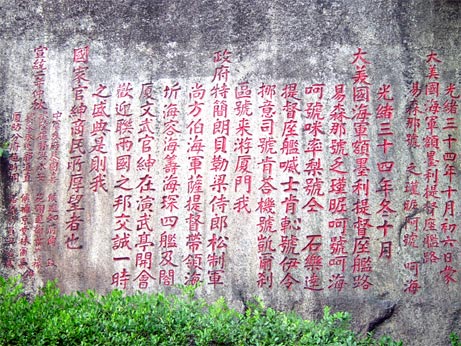 光緒三十四年十月初六日蒙
大美國海軍額墨利提督座艦路
易森那號乏瑾昵呵號呵海
光緒三十四年冬十月
大美國海軍額墨利提督座艦路
易森那號乏瑾昵呵號呵海
呵號咪率梨號仝石樂達
提督座艦喊士肯軫號伊令
挪意司號肯答機號凱爾刹
區號來游厦門我
政府特簡朗貝勒梁侍郎松制軍
尚方伯海軍薩提督帶領海
圻海容海籌海琛四艦及閤
厦文武官紳在演武亭開會
歡迎聯兩國之邦交誠一時
之盛典是則我
國家官紳商民所厚望者也